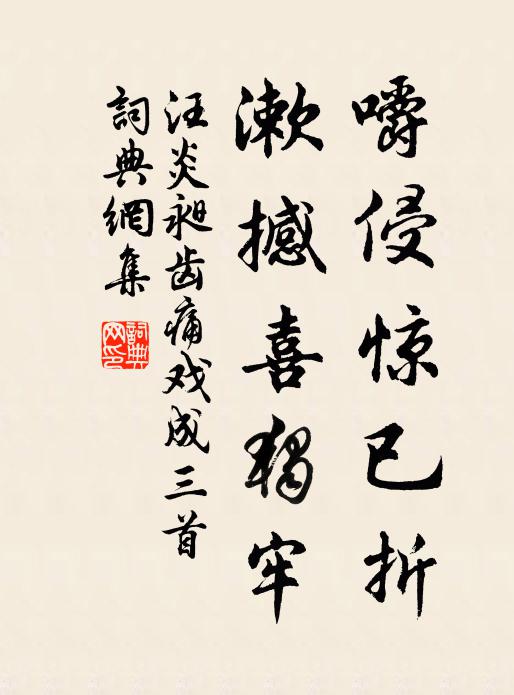 嚼侵惊已折
漱撼喜獨牢
汪炎昶齿痛戏成三首
詞典網集
詞典網印